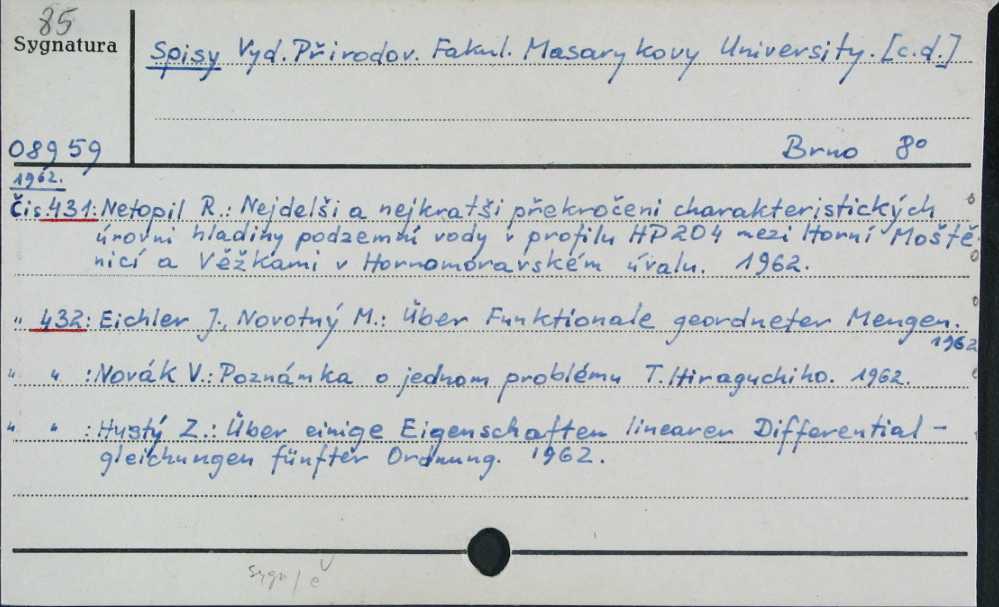 85
Sygnatura
Spisy Vyd. Přirodov. Fakul. Masarykovy University. [c.d.]
08959
Brno 8º
1962.
Čis. 431: Netopil R.: Nejdelši a nejkratši překročeni charakteristických
úrovni hladiny podzemní vody v profilu HP204 mezi Horní Moště-
nicí a Věžkami v Hornomoravském úvalu. 1962.
" 432: Eichler J., Novotný M.: Über Funktionale geordneter Mengen.
1962
" " : Novák V.: Poznámka o jednom problému T. Hiraguchiho. 1962.
" " : Hustý Z.: Über einige Eigenschaften linearer Differential-
gleichungen fünfter Ordnung. 1962.